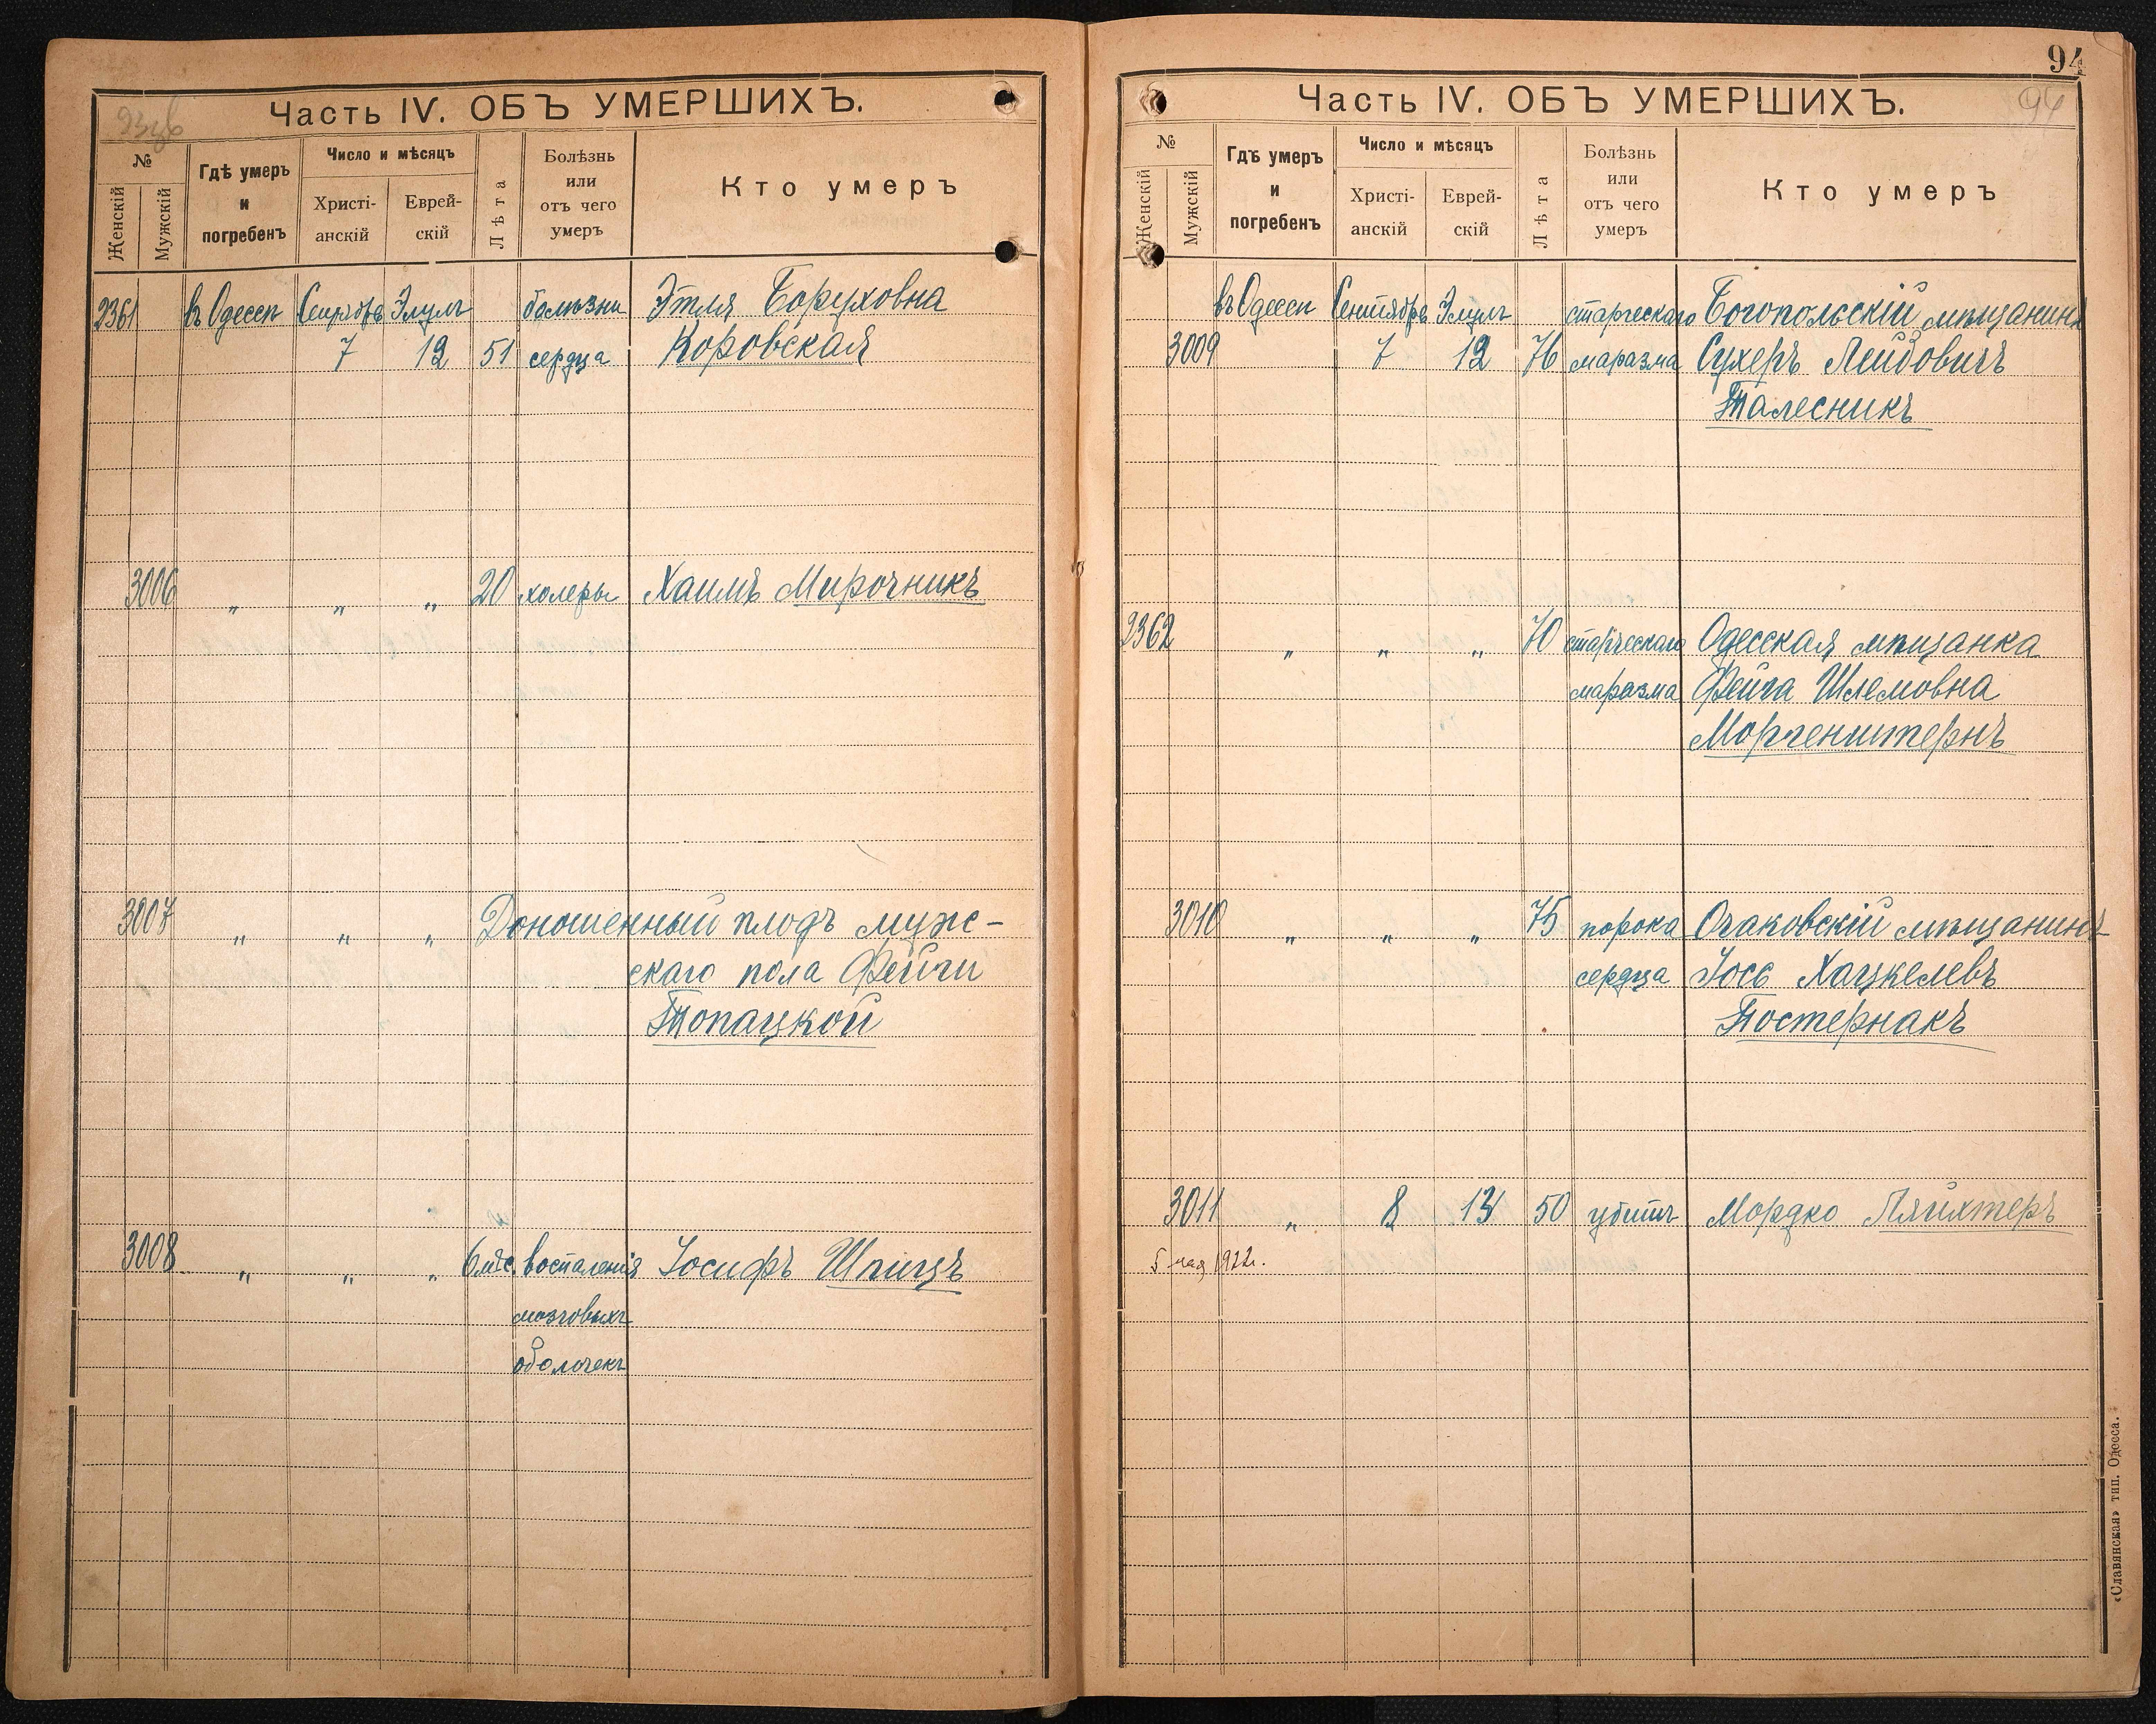 Часть IV. ОБЪ УМЕРШИХЪ.
№
Женскій
Мужскій
Гдѣ умеръ
и
погребенъ
Число и мѣсяцъ
Христі-
анскій
Еврей-
скій
Лѣта
Болѣзнь
или
отъ чего
умеръ
Кто умеръ
2361 въ Одессѣ Сентябрь Элулъ болѣзни Этля Боруховна
7 12 51 сердца Коровская
3006 " " " 20 холеры Хаимъ Мирочникъ
3007 " " " Доношенный плодъ муж-
скаго пола Фейги
Топацкой
3008 " " " 6 мѣс. воспаленія Іосифъ Шпицъ
мозговыхъ
оболочекъ
94
Часть IV. ОБЪ УМЕРШИХЪ.
94
№
Женскій
Мужскій
Гдѣ умеръ
и
погребенъ
Число и мѣсяцъ
Христі-
анскій
Еврей-
скій
Лѣта
Болѣзнь
или
отъ чего
умеръ
Кто умеръ
въ Одессѣ Сентябрь Элулъ старческаго Богопольскій мѣщанинъ
3009 7 12 76 маразма Сухеръ Лейбовичъ
Талесникъ
2362 " " " 70 старческаго Одесская мѣщанка
маразма Фейга Шлемовна
Моргенштернъ
3010 " " " 75 порока Очаковскій мѣщанинъ
сердца Іось Хацкелевъ
Постернакъ
3011 " 8 13 50 убитъ Мордко Ляйхтеръ
5 мая 1922г.
«Славянская» тип. Одесса.